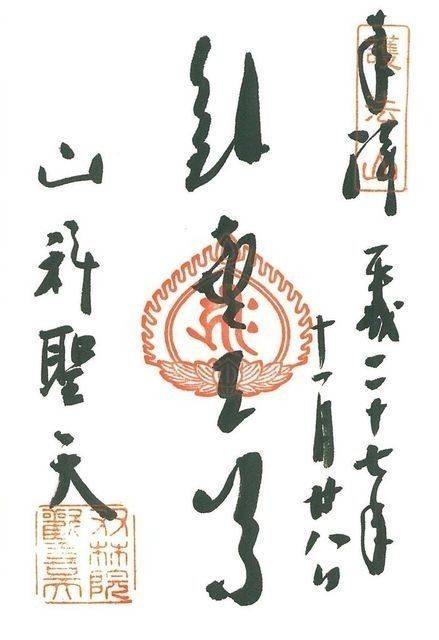 奉拝
護法山
平成二十七年
十一月廿八日
山科聖天
双林院
歡喜天